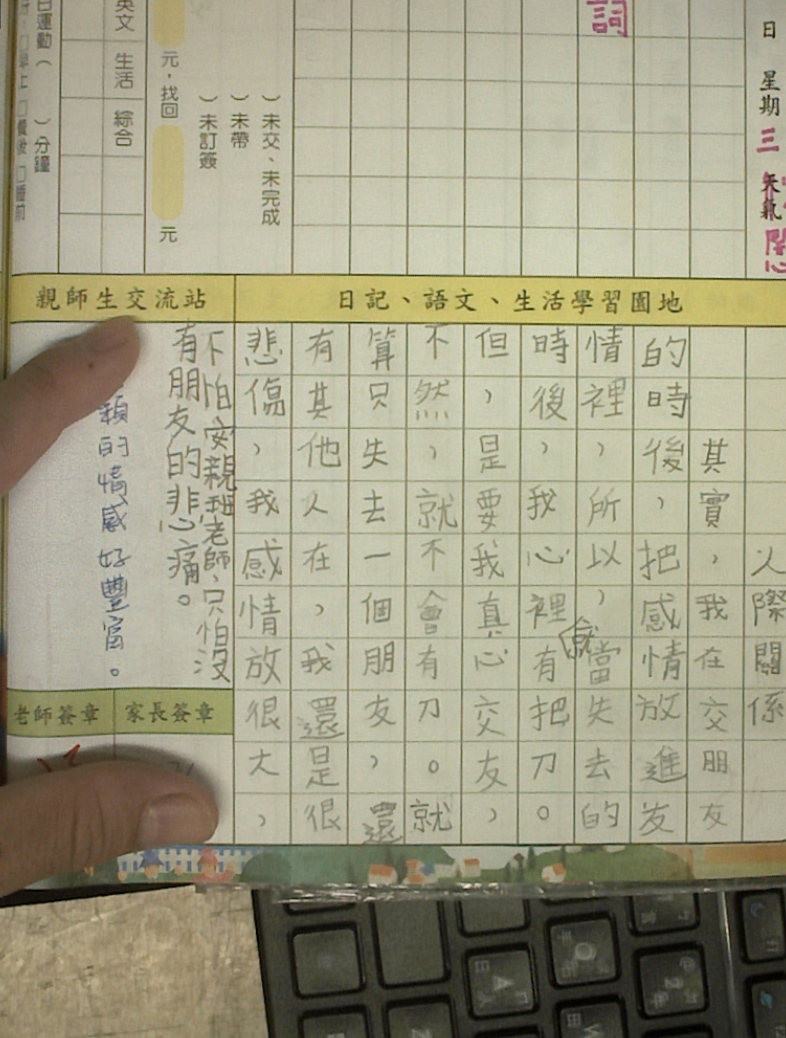 日 星期三 天氣
詞
）未交、未完成
）未帶
）未訂簽
元，找回 元
英文 生活 綜合
日運動（ ）分鐘
日記、語文、生活學習園地
親師生交流站
人際關係
其實，我在交朋友
的時後，把感情放進友
情裡，所以，當就失去的
時後，我心裡有把刀。
但，是要我真心交友，
不然，就不會有刀。就
算只失去一個朋友，還
有其他人在，我還是很
悲傷，我感情放很大，
不怕安親班老師，只怕沒
有朋友的悲痛。
穎的情感好豐富。
家長簽章
老師簽章